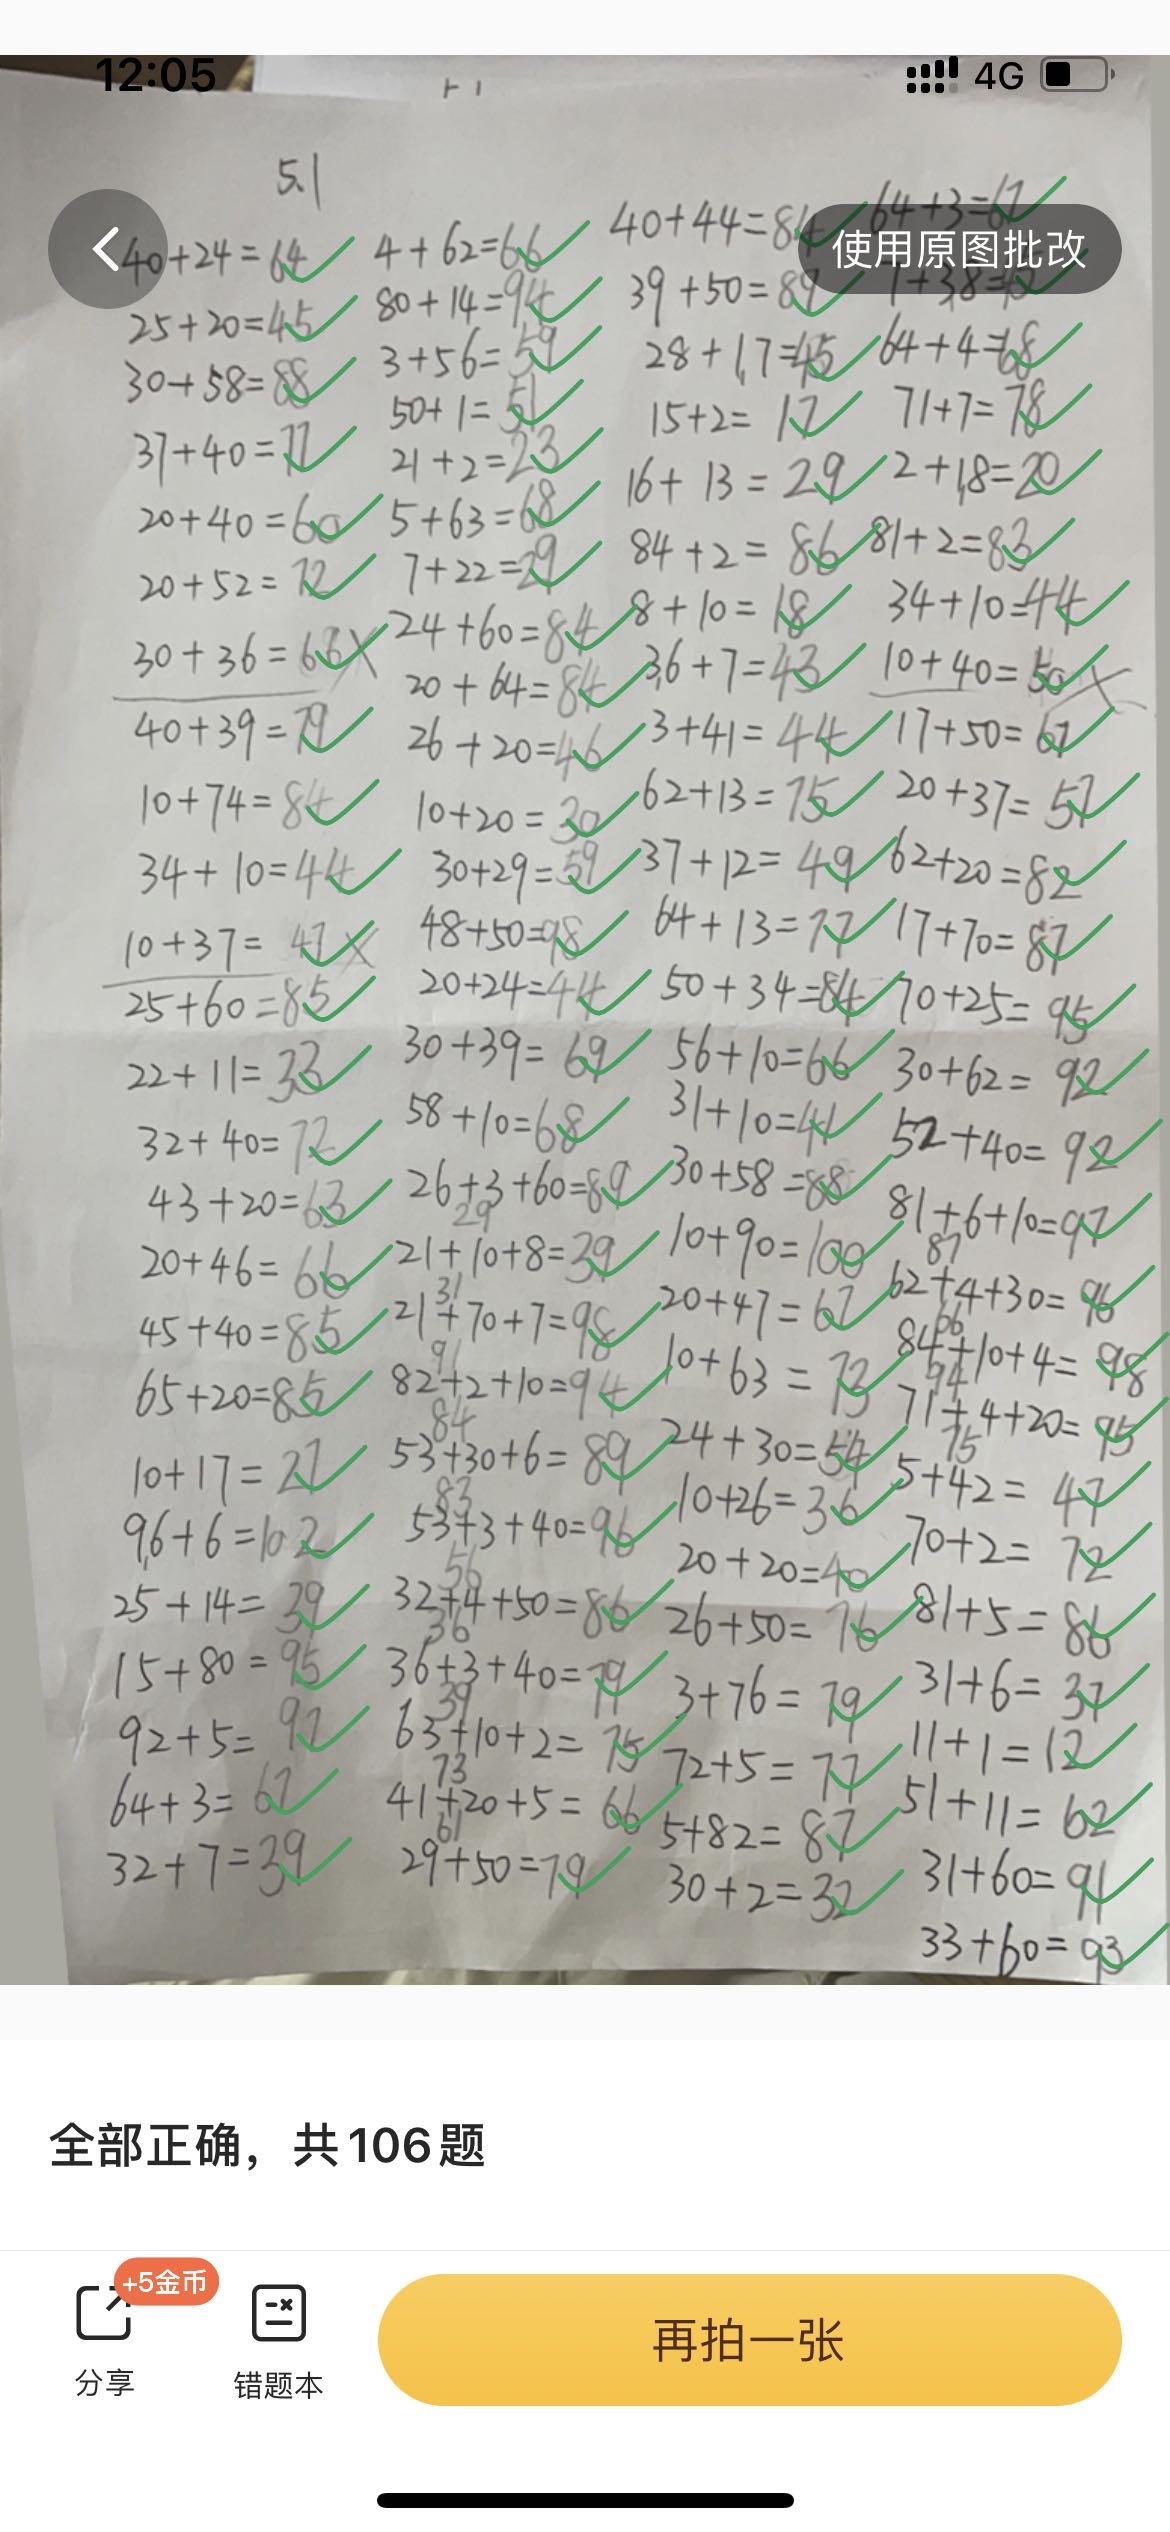 12:05
4G
5.1
使用原图批改
40+24=64
25+20=45
30+58=88
37+40=77
20+40=60
20+52=72
30+36=66 X
40+39=79
10+74=84
34+10=44
10+37=47 X
25+60=85
22+11=33
32+40=72
43+20=63
20+46=66
45+40=85
65+20=85
10+17=27
96+6=102
25+14=39
15+80=95
92+5=97
64+3=67
32+7=39
4+62=66
80+14=94
3+56=59
50+1=51
21+2=23
5+63=68
7+22=29
24+60=84
20+64=84
26+20=46
10+20=30
30+29=59
48+50=98
20+24=44
30+39=69
58+10=68
26+3+60=89
29
21+10+8=39
31
21+70+7=98
91
82+2+10=94
84
53+30+6=89
83
53+3+40=96
56
32+4+50=86
36
36+3+40=79
39
63+10+2=75
73
41+20+5=66
61
29+50=79
40+44=84
39+50=89
28+17=45
15+2=17
16+13=29
84+2=86
8+10=18
36+7=43
3+41=44
62+13=75
37+12=49
64+13=77
50+34=84
56+10=66
31+10=41
30+58=88
10+90=100
20+47=67
10+63=73
24+30=54
10+26=36
20+20=40
26+50=76
3+76=79
72+5=77
5+82=87
30+2=32
64+3=67
7+38=
64+4=68
71+7=78
2+18=20
81+2=83
34+10=44
10+40=50 X
17+50=67
20+37=57
62+20=82
17+70=87
70+25=95
30+62=92
52+40=92
81+6+10=97
87
62+4+30=96
66
84+10+4=98
94
71+4+20=95
75
5+42=47
70+2=72
81+5=86
31+6=37
11+1=12
51+11=62
31+60=91
33+60=93
全部正确，共106题
+5金币
分享
错题本
再拍一张